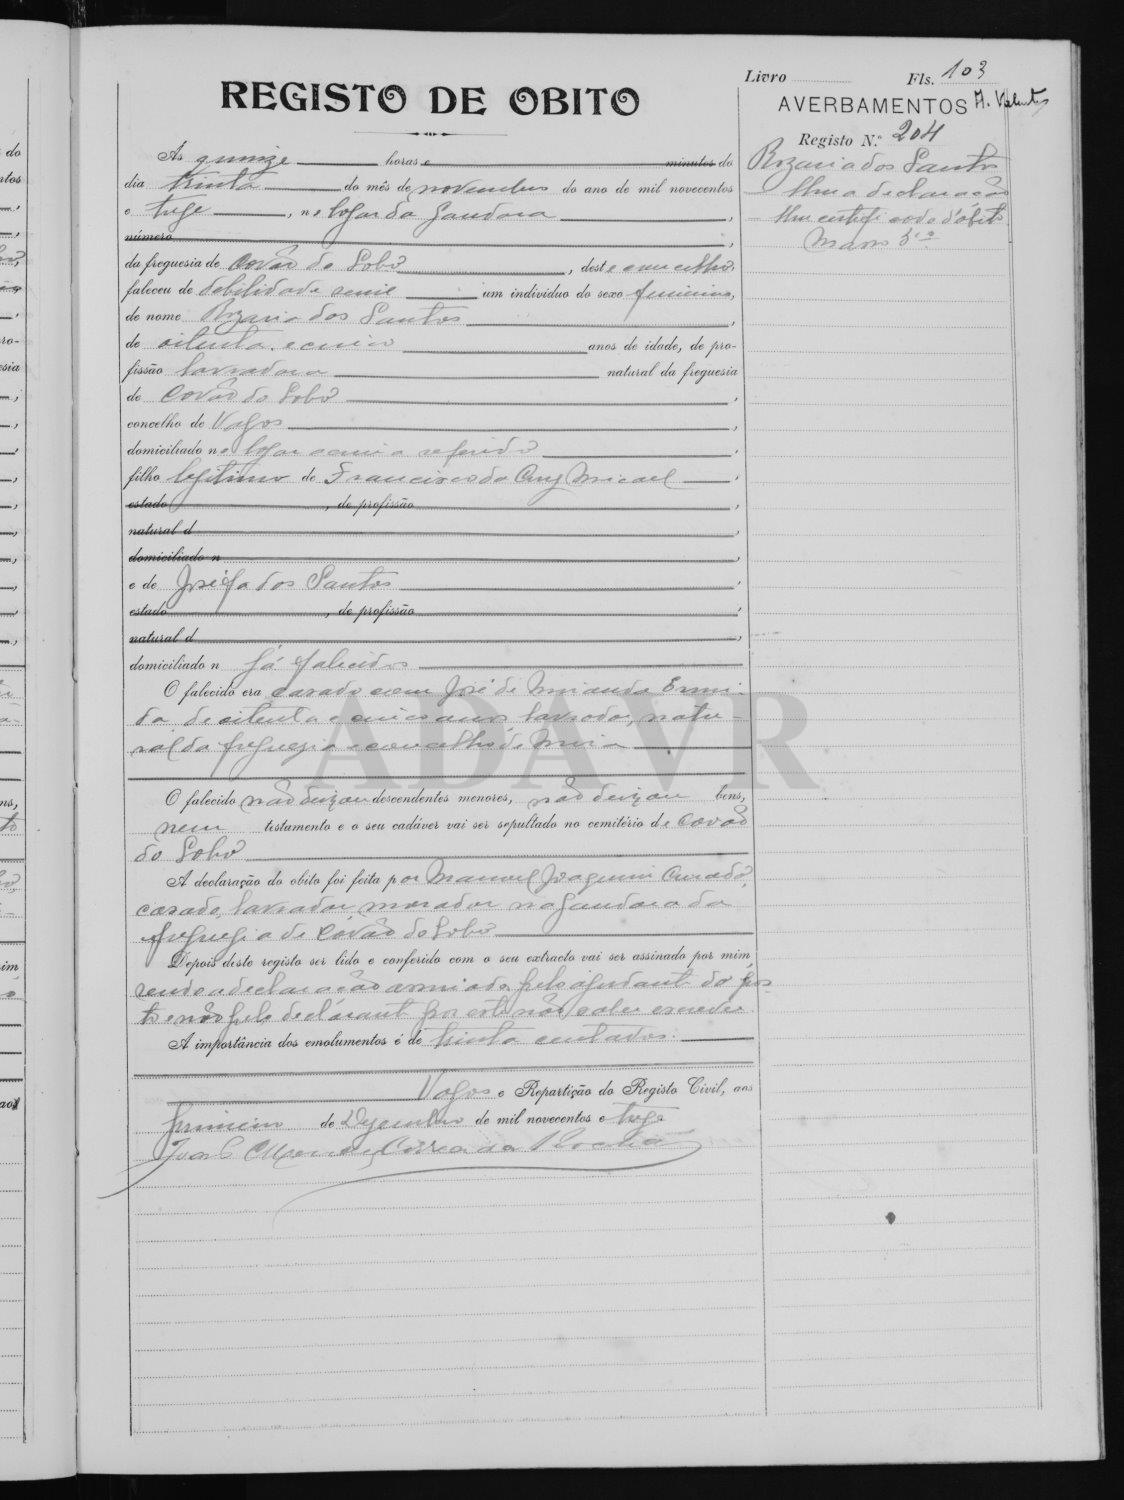 Livro Fls. 103
REGISTO DE OBITO
AVERBAMENTOS
Registo N.º 204
Rozaria dos Santos
Uma declaração
Um certificado d'obito
Maço 3.º
Ás quinze horas e minutos do
dia trinta do mês de novembro do ano de mil novecentos
e treze, no logar da Gandara,
número,
da freguesia de Covão do Lobo, deste concelho,
faleceu de debilidade senil um individuo do sexo feminino,
de nome Rozaria dos Santos,
de oitenta e cinco anos de idade, de pro-
fissão lavradora natural da freguesia
de Covão do Lobo,
concelho de Vagos,
domiciliado no logar acima referido,
filho legitimo de Francisco da Cruz Micael,
estado, de profissão,
natural d
domiciliado n,
e de Josefa dos Santos,
estado, de profissão,
natural d,
domiciliado n Já falecidos
O falecido era casado com José de Miranda Ermi-
da de oitenta e cinco anos lavrador, natu-
ral da freguesia e concelho de Mira
O falecido não deixou descendentes menores, não deixou bens,
nem testamento e o seu cadáver vai ser sepultado no cemitério de Covão
do Lobo
A declaração do obito foi feita por Manuel Joaquim Curado,
casado, lavrador, morador na Gandara da
freguesia de Covão do Lobo
Depois deste registo ser lido e conferido com o seu extracto vai ser assinado por mim
sendo a declaração assinada pelo ajudante do pos
to e não pelo declarante por este não saber escrever
A importância dos emolumentos é de trinta centavos.
Vagos e Repartição do Registo Civil, aos
primeiro de Dezembro de mil novecentos e treze
Correia da Rocha
ADAVR